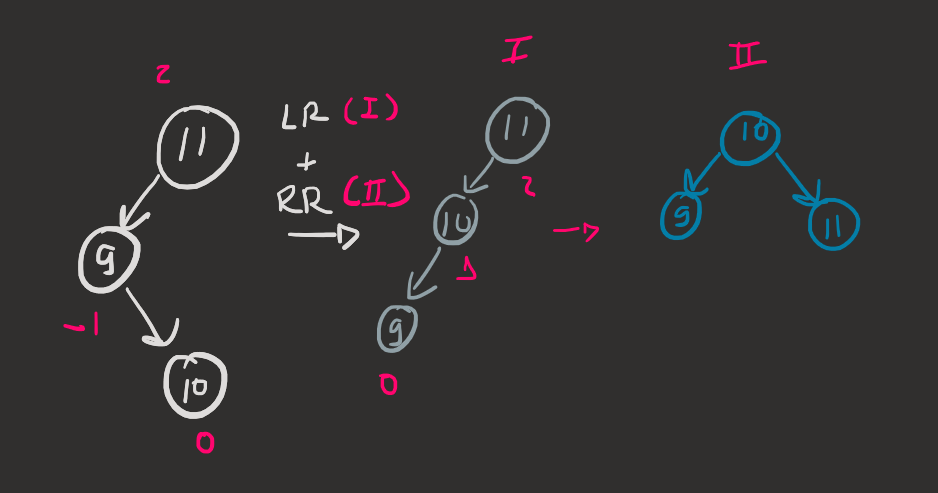 2
11
9
-1
10
0
LR (I)
+
RR (II)
I
11
2
10
1
9
0
II
10
9
11